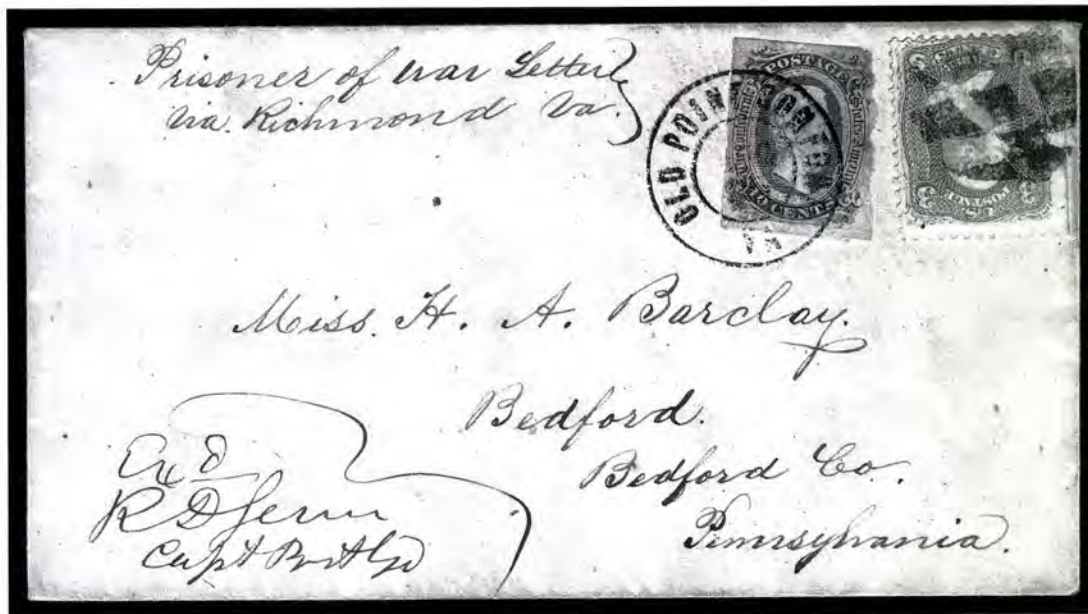 Prisoner of war Letter
via. Richmond Va.
OLD POINT COMFORT
VA
POSTAGE
CENTS
U.S. POSTAGE
3 3
Miss. H. A. Barclay.
Bedford.
Bedford Co.
Pennsylvania.
Exd
R D Senn
Capt Post Gd